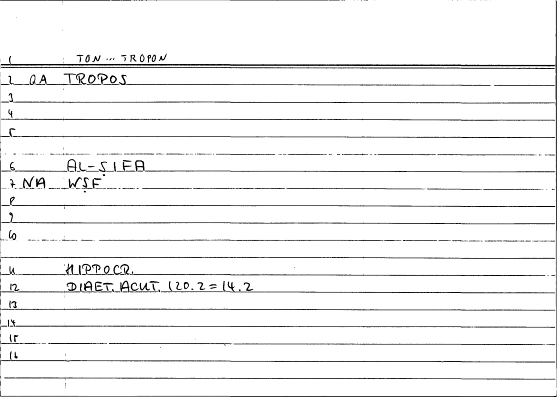 1 TON ... TROPON
2 QA TROPOS
3
4
5
6 AL-ṢIFA
7 NA WṢF
8
9
10
11 HIPPOCR.
12 DIAET. ACUT. 120.2 = 14.2
13
14
15
16